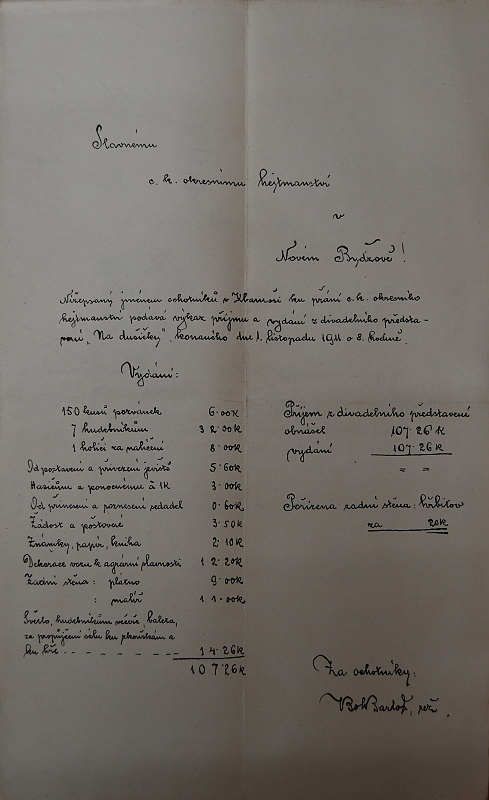 Slavnému
c. k. okresnímu hejtmanství
v
Novém Bydžově!
Nížepsaný jménem ochotníků v Chomuši ku přání c. k. okresního
hejtmanství podává výkaz příjmu a vydání z divadelního předsta-
vení „Na dušičky" konaného dne 1. listopadu 1911 o 8. hodině.
Vydání:
150 kusů pozvánek 6·00K
7 hudebníkům 32·00K
1 holiči za nalíčení 8·00K
Od postavení a přivezení jeviště 5·60K
Hasičům a ponocnému à 1K 3·00K
Od přinesení a roznesení sedadel 0·60K
Žádost a poštovné 3·50K
Známky, papír, kniha 2·10K
Dekorace vozu k agrární slavnosti 12·20K
Zadní stěna: plátno 9·00K
: malíř 11·00K
Světlo, hudebníkům večeře, baleta,
za propůjčení sálu ku zkouškám a
ku hře 14·26K
107·26K
Příjem z divadelního představení
obnášel 107·26K
vydání 107·26K
= =
Pořízena zadní stěna: hřbitov
za 20K
Za ochotníky:
Boh Bartoš, rež.